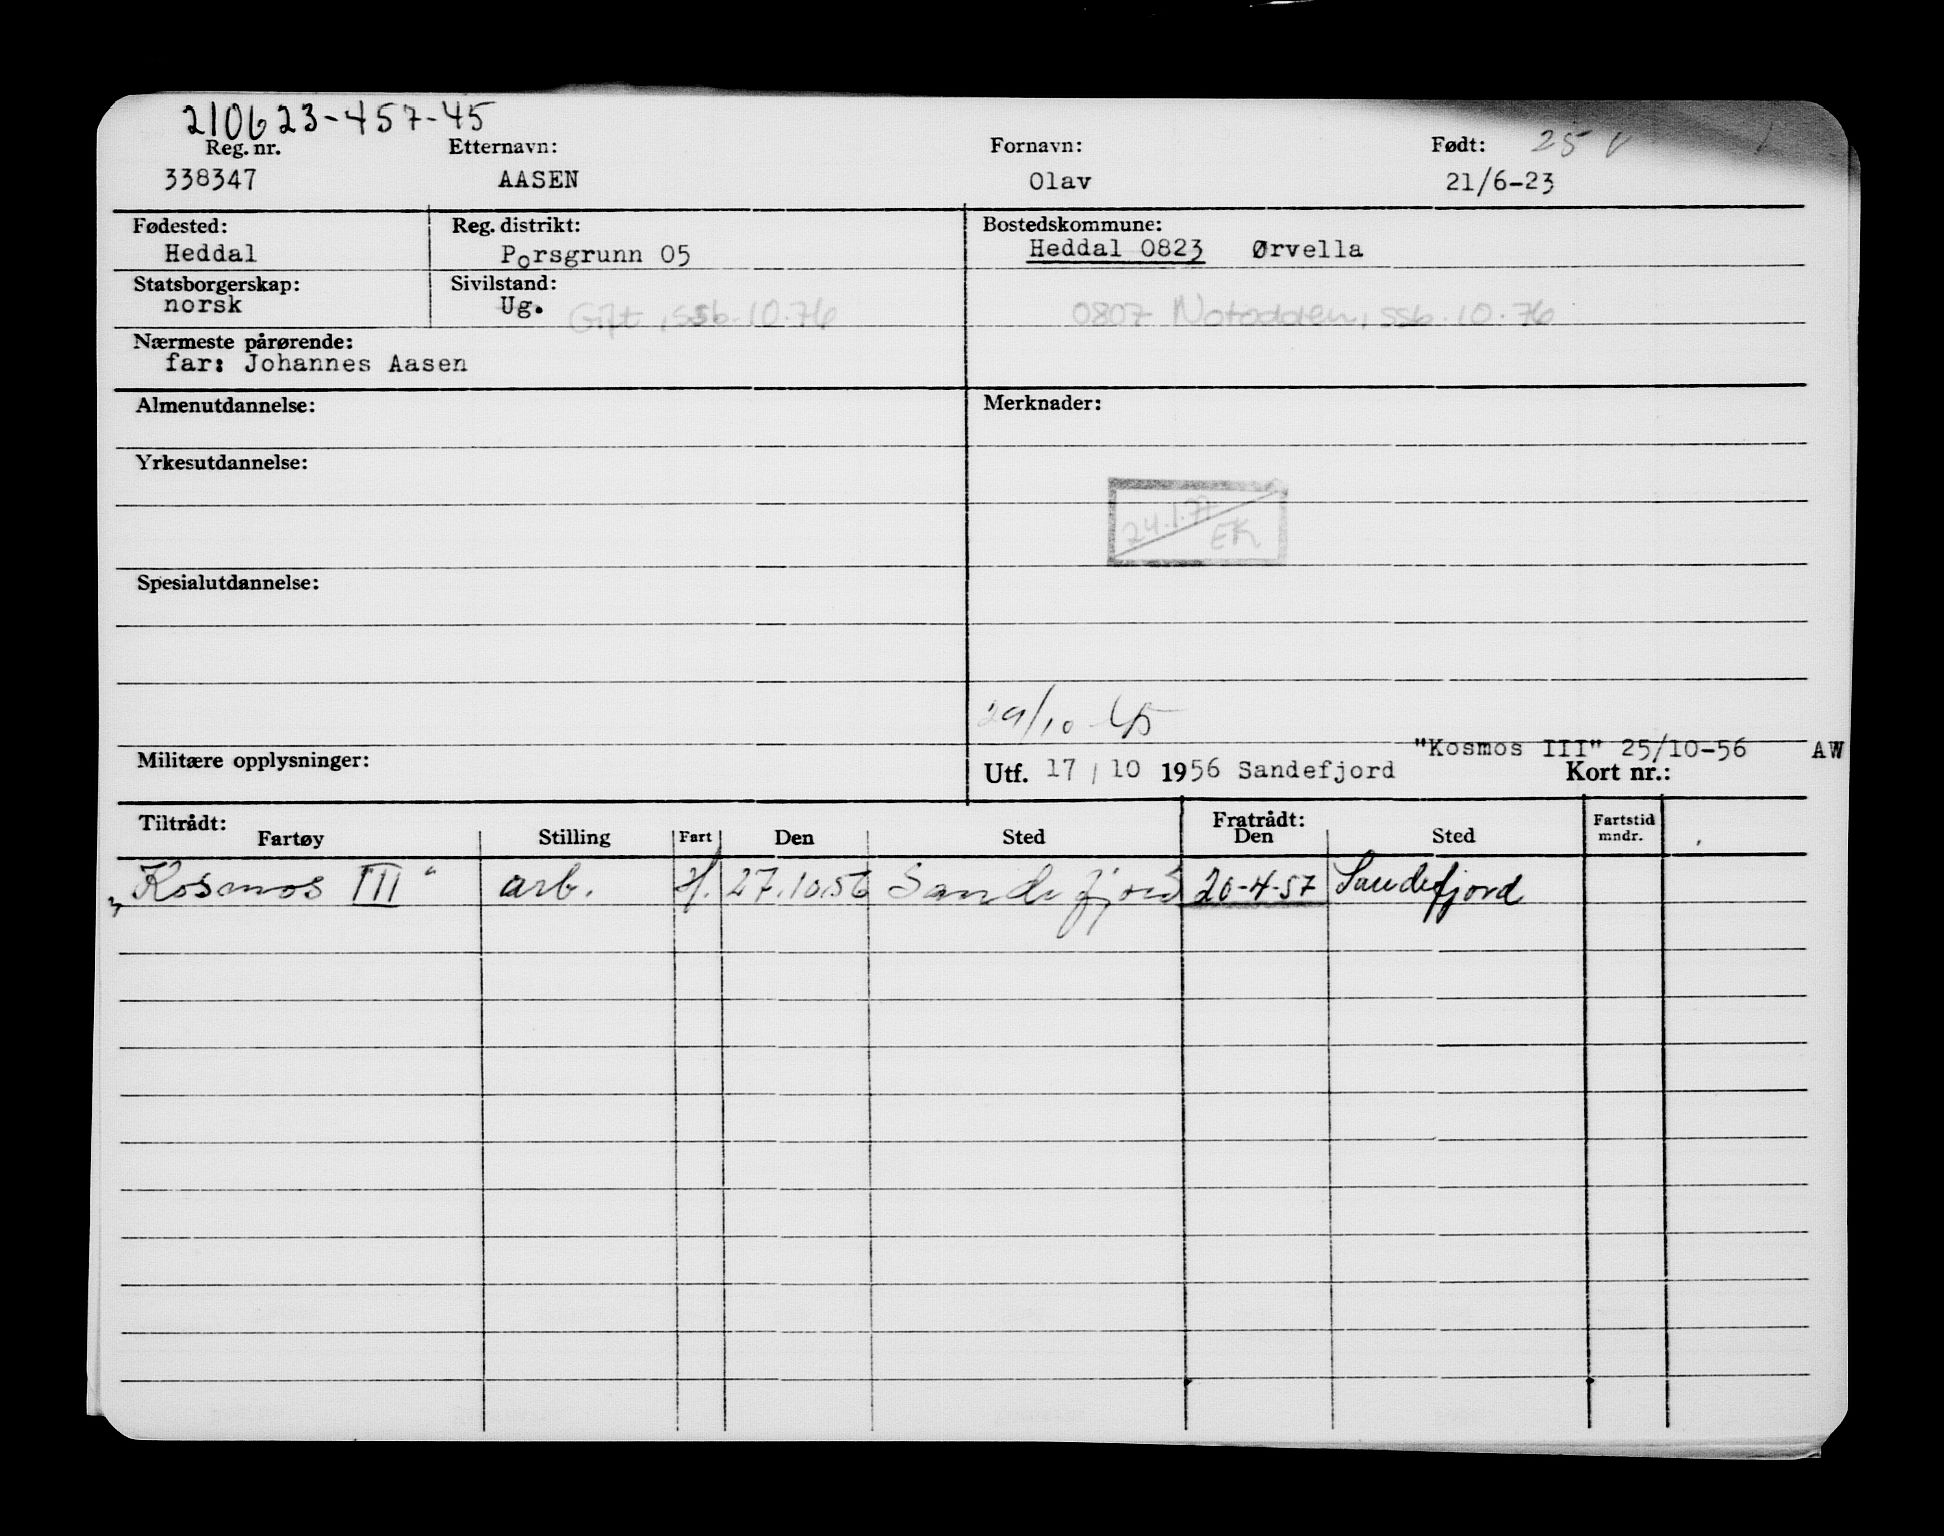 210623-457-45
Reg. nr. Etternavn: Fornavn: Født: 25
338347 AASEN Olav 21/6-23
Fødested: Reg. distrikt: Bostedskommune:
Heddal Porsgrunn 05 Heddal 0823 Ørvella
Statsborgerskap: Sivilstand:
norsk Ug. Gift, ssb. 10.76 0807 Notodden, ssb. 10.76
Nærmeste pårørende:
far: Johannes Aasen
Almenutdannelse: Merknader:
Yrkesutdannelse:
24.1.77 EK
Spesialutdannelse:
29/10 45
"Kosmos III" 25/10-56 AW
Militære opplysninger: Utf. 17 / 10 1956 Sandefjord Kort nr.:
Tiltrådt: Fratrådt: Fartstid
Fartøy Stilling Fart Den Sted Den Sted mndr.
"Kosmos III" arb. H. 27.10.56 Sandefjord 20-4-57 Sandefjord